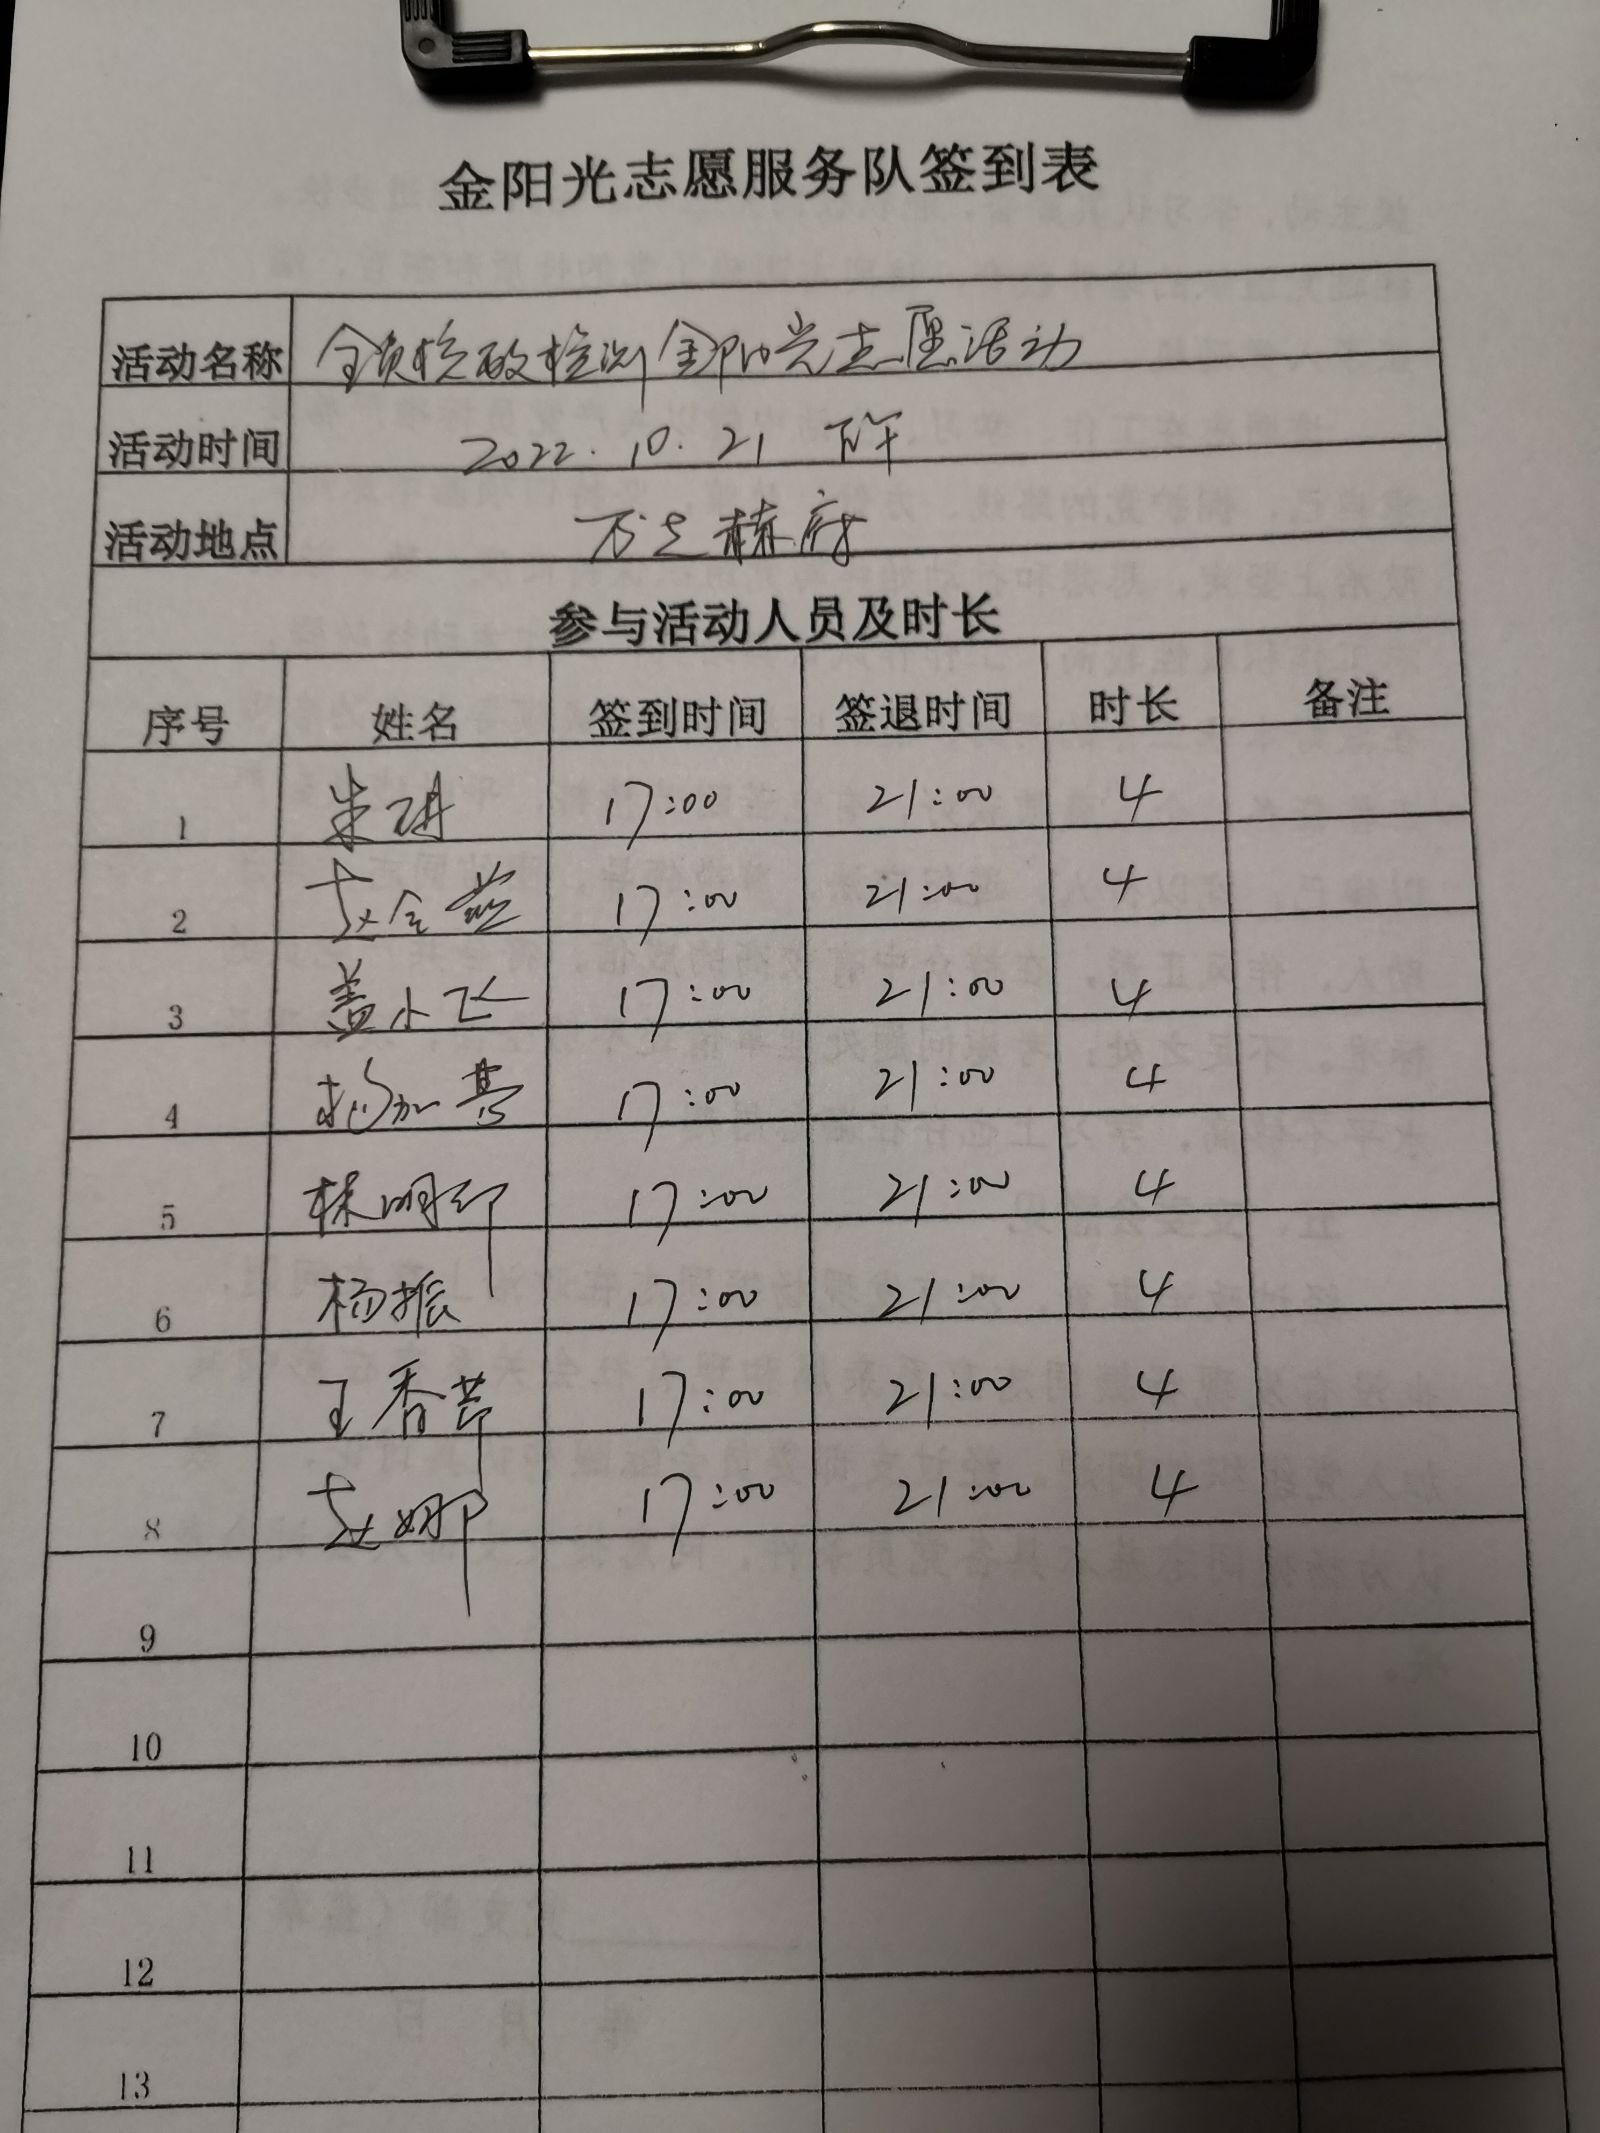 金阳光志愿服务队签到表
活动名称 全员核酸检测金阳光志愿活动
活动时间 2022.10.21 下午
活动地点
参与活动人员及时长
序号 姓名 签到时间 签退时间 时长 备注
1 朱琪 17:00 21:00 4
2 17:00 21:00 4
3 盖小飞 17:00 21:00 4
4 17:00 21:00 4
5 17:00 21:00 4
6 杨振 17:00 21:00 4
7 王香芹 17:00 21:00 4
8 赵娜 17:00 21:00 4
9
10
11
12
13